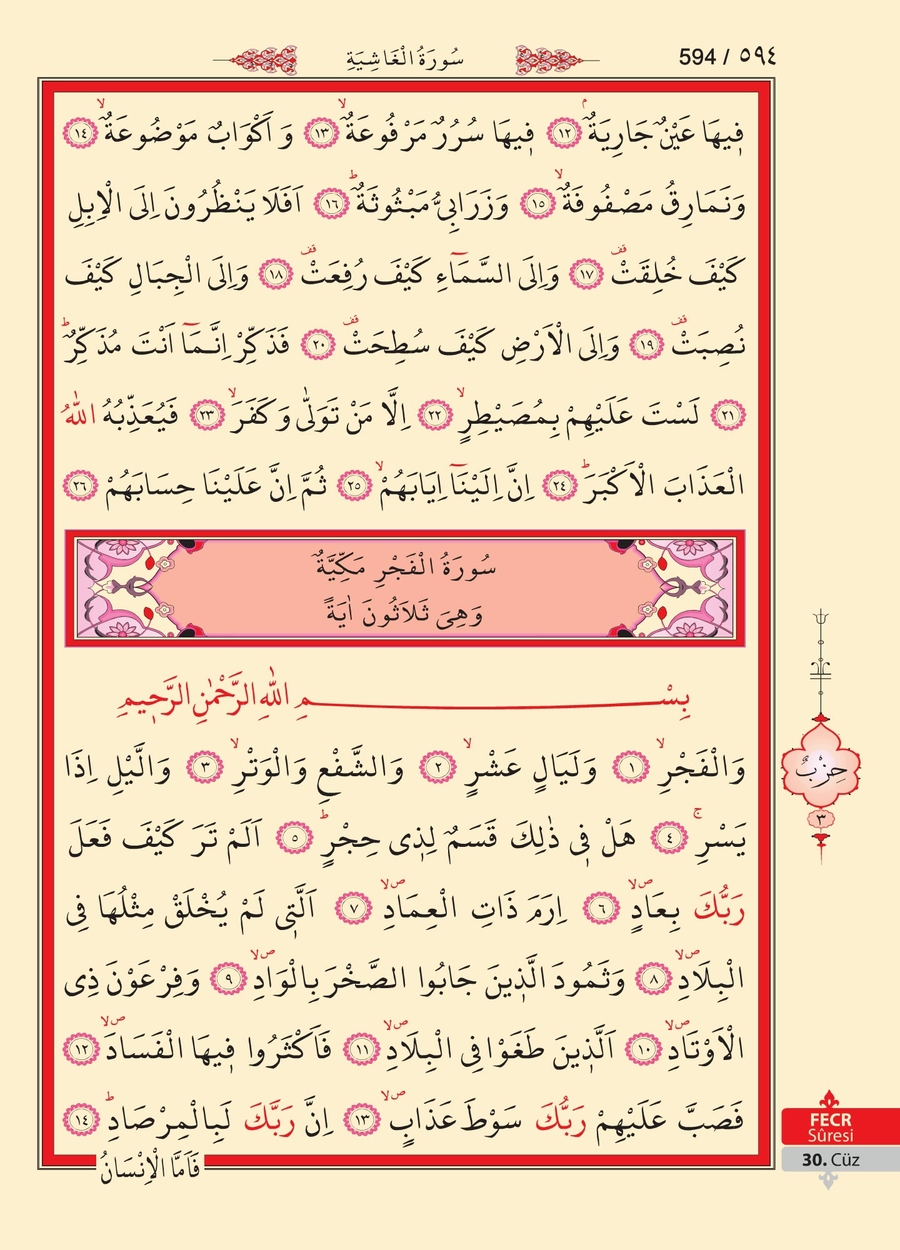 سُورَةُ الْغَاشِيَةِ
594 / ٥٩٤
فٖيهَا عَيْنٌ جَارِيَةٌۢ ﴿١٢﴾ فٖيهَا سُرُرٌ مَرْفُوعَةٌۙ ﴿١٣﴾ وَ اَكْوَابٌ مَوْضُوعَةٌۙ ﴿١٤﴾
وَنَمَارِقُ مَصْفُوفَةٌۙ ﴿١٥﴾ وَزَرَابِيُّ مَبْثُوثَةٌؕ ﴿١٦﴾ اَفَلَا يَنْظُرُونَ اِلَى الْاِبِلِ
كَيْفَ خُلِقَتْ قف ﴿١٧﴾ وَاِلَى السَّمَٓاءِ كَيْفَ رُفِعَتْ قف ﴿١٨﴾ وَاِلَى الْجِبَالِ كَيْفَ
نُصِبَتْ قف ﴿١٩﴾ وَاِلَى الْاَرْضِ كَيْفَ سُطِحَتْ قف ﴿٢٠﴾ فَذَكِّرْ اِنَّمَٓا اَنْتَ مُذَكِّرٌؕ
﴿٢١﴾ لَسْتَ عَلَيْهِمْ بِمُصَيْطِرٍۙ ﴿٢٢﴾ اِلَّا مَنْ تَوَلّٰى وَ كَفَرَۙ ﴿٢٣﴾ فَيُعَذِّبُهُ اللّٰهُ
الْعَذَابَ الْاَكْبَرَؕ ﴿٢٤﴾ اِنَّ اِلَيْنَٓا اِيَابَهُمْۙ ﴿٢٥﴾ ثُمَّ اِنَّ عَلَيْنَا حِسَابَهُمْ ﴿٢٦﴾
سُورَةُ الْفَجْرِ مَكِّيَّةٌ
وَهِيَ ثَلَاثُونَ اٰيَةً
بِسْمِ اللّٰهِ الرَّحْمٰنِ الرَّحٖيمِ
وَالْفَجْرِۙ ﴿١﴾ وَلَيَالٍ عَشْرٍۙ ﴿٢﴾ وَالشَّفْعِ وَالْوَتْرِۙ ﴿٣﴾ وَالَّيْلِ اِذَا
يَسْرِۚ ﴿٤﴾ هَلْ فٖي ذٰلِكَ قَسَمٌ لِذٖي حِجْرٍؕ ﴿٥﴾ اَلَمْ تَرَ كَيْفَ فَعَلَ
رَبُّكَ بِعَادٍ صلا ﴿٦﴾ اِرَمَ ذَاتِ الْعِمَادِ صلا ﴿٧﴾ اَلَّتٖي لَمْ يُخْلَقْ مِثْلُهَا فِي
الْبِلَادِ صلا ﴿٨﴾ وَثَمُودَ الَّذٖينَ جَابُوا الصَّخْرَ بِالْوَادِ صلا ﴿٩﴾ وَفِرْعَوْنَ ذِي
الْاَوْتَادِ صلا ﴿١٠﴾ اَلَّذٖينَ طَغَوْا فِي الْبِلَادِ صلا ﴿١١﴾ فَاَكْثَرُوا فٖيهَا الْفَسَادَ صلا ﴿١٢﴾
فَصَبَّ عَلَيْهِمْ رَبُّكَ سَوْطَ عَذَابٍ صلا ﴿١٣﴾ اِنَّ رَبَّكَ لَبِالْمِرْصَادِؕ ﴿١٤﴾
فَاَمَّا الْاِنْسَانُ
حِزْبٌ
٣
FECR
Sûresi
30. Cüz